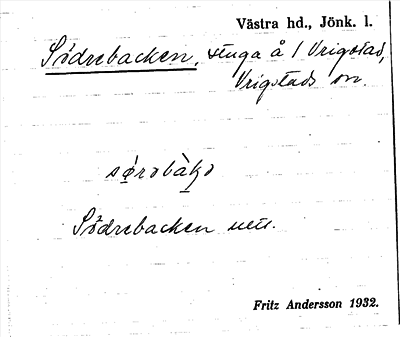 Västra hd., Jönk. l.
Södrebacken, stuga å 1 Vrigstad,
Vrigstads sn.
Södrebacken
Fritz Andersson 1932.